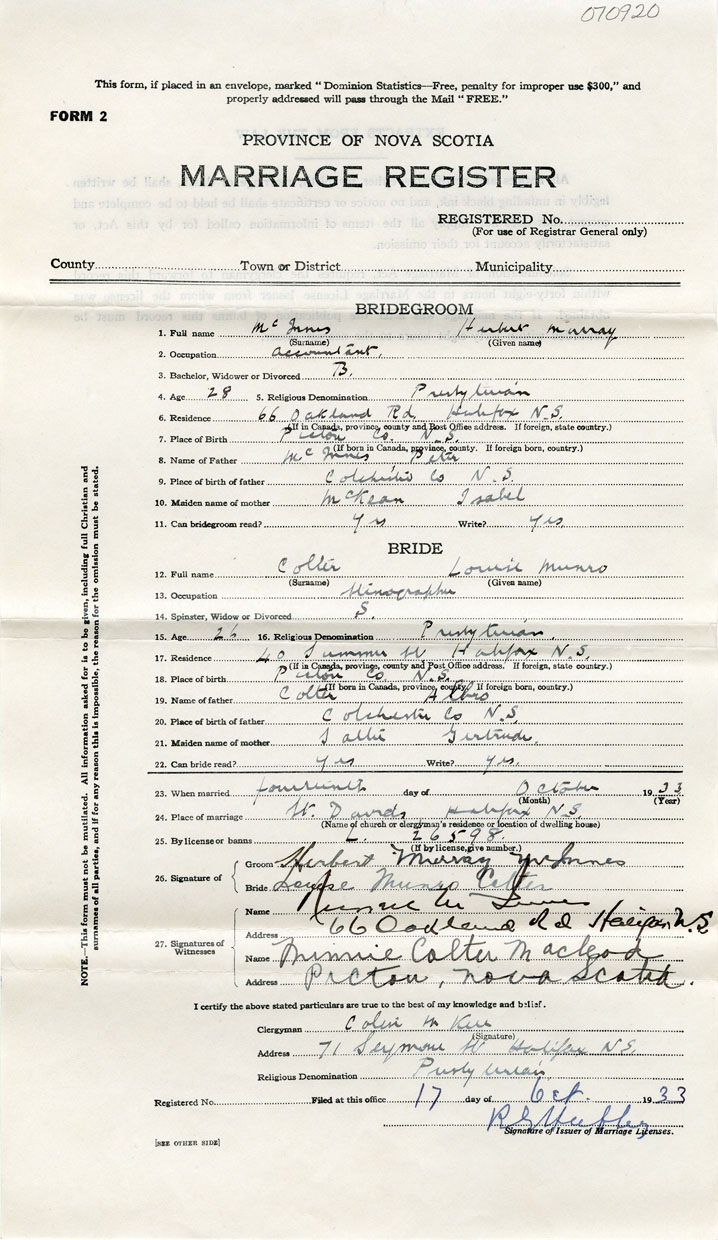 070920
This form, if placed in an envelope, marked "Dominion Statistics—Free, penalty for improper use $300," and
properly addressed will pass through the Mail "FREE."
FORM 2
PROVINCE OF NOVA SCOTIA
MARRIAGE REGISTER
REGISTERED No.
(For use of Registrar General only)
County Town or District Municipality
BRIDEGROOM
1. Full name McInnes Herbert Murray
(Surname) (Given name)
2. Occupation accountant.
3. Bachelor, Widower or Divorced B.
4. Age 28 5. Religious Denomination Presbyterian
6. Residence 66 Oakland Rd Halifax N.S.
(If in Canada, province, county and Post Office address. If foreign, state country.)
7. Place of Birth Pictou Co. N.S.
(If born in Canada, province, county. If foreign born, country.)
8. Name of Father McInnes Peter
9. Place of birth of father Colchester Co N.S.
10. Maiden name of mother McKean Isabel
11. Can bridegroom read? Yes Write? Yes.
BRIDE
12. Full name Colter Louise Munro
(Surname) (Given name)
13. Occupation Stenographer
14. Spinster, Widow or Divorced S.
15. Age 26 16. Religious Denomination Presbyterian.
17. Residence 40 Summer St Halifax N.S.
(If in Canada, province, county and Post Office address. If foreign, state country.)
18. Place of birth Pictou Co N.S.
(If born in Canada, province, county. If foreign born, country.)
19. Name of father Colter
20. Place of birth of father Colchester Co N.S.
21. Maiden name of mother Gertrude.
22. Can bride read? Yes Write? Yes.
23. When married fourteenth day of October 1933
(Month) (Year)
24. Place of marriage St. Davids Halifax N.S.
(Name of church or clergyman's residence or location of dwelling house)
25. By license or banns L. 26598.
(If by license, give number.)
26. Signature of
Groom Herbert Murray McInnes
Bride Louise Munro Colter
27. Signatures of Witnesses
Name
Address 66 Oakland Rd Halifax N.S.
Name Minnie Colter Macleod
Address Pictou, Nova Scotia.
I certify the above stated particulars are true to the best of my knowledge and belief.
Clergyman Colin M Kerr
(Signature)
Address 71 Seymour St Halifax N.S.
Religious Denomination Presbyterian
Registered No. Filed at this office 17 day of Oct. 1933
Signature of Issuer of Marriage Licenses.
[SEE OTHER SIDE]
NOTE.—This form must not be mutilated. All information asked for is to be given, including full Christian and
surnames of all parties, and if for any reason this is impossible, the reason for the omission must be stated.